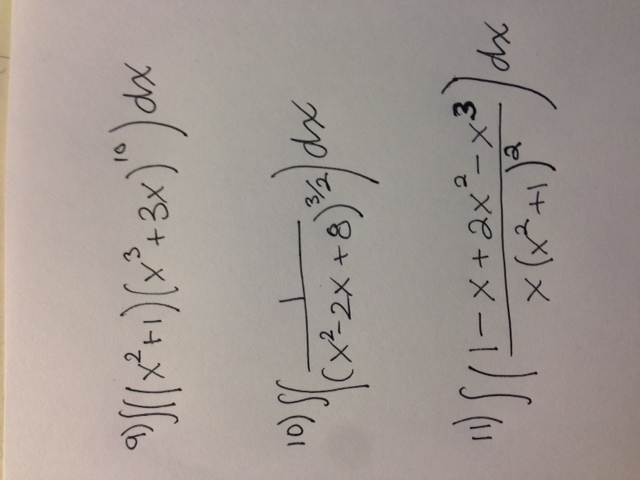 9) ∫((x²+1)(x³+3x)¹⁰)dx
10) ∫(1/(x²-2x+8)^(3/2))dx
11) ∫((1-x+2x²-x³)/(x(x²+1)²))dx